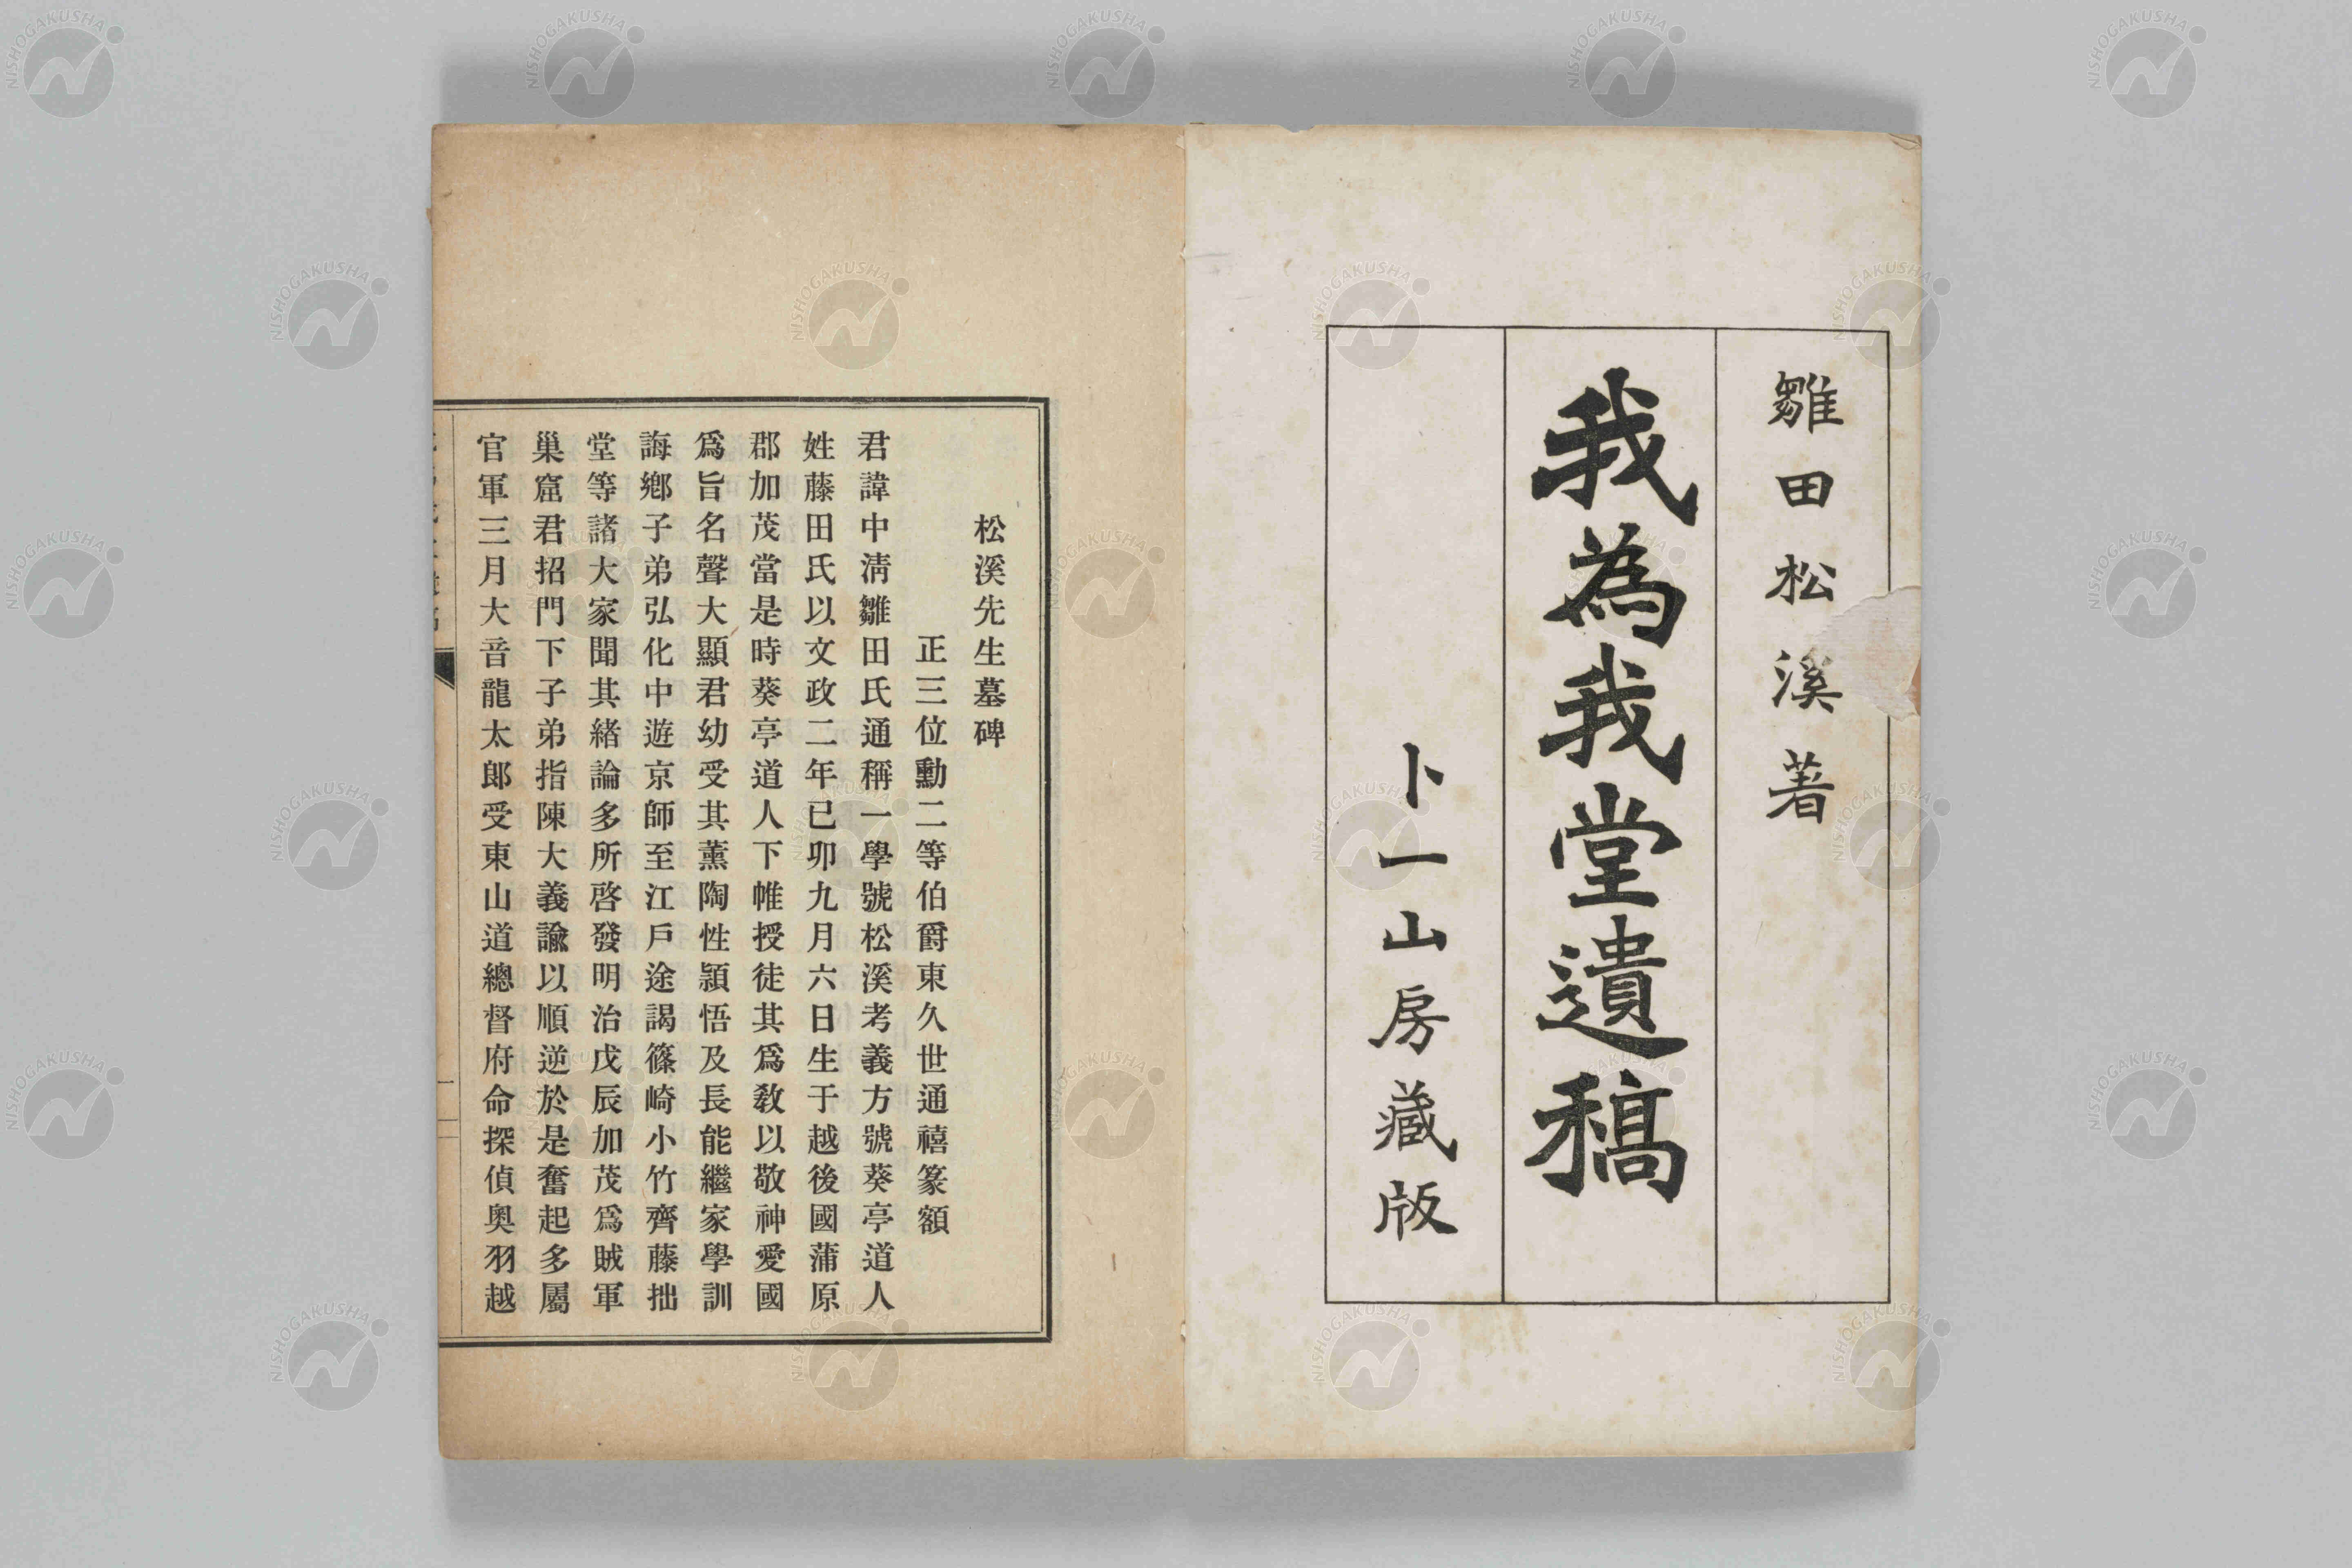 雛田松溪著
我為我堂遺稿
卜一山房藏版
松溪先生墓碑
正三位勳二等伯爵東久世通禧篆額
君諱中淸雛田氏通稱一學號松溪考義方號葵亭道人
姓藤田氏以文政二年己卯九月六日生于越後國蒲原
郡加茂當是時葵亭道人下帷授徒其爲敎以敬神愛國
爲旨名聲大顯君幼受其薰陶性頴悟及長能繼家學訓
誨鄕子弟弘化中遊京師至江戶途謁篠崎小竹齊藤拙
堂等諸大家聞其緖論多所啓發明治戊辰加茂爲賊軍
巢窟君招門下子弟指陳大義諭以順逆於是奮起多屬
官軍三月大音龍太郎受東山道總督府命探偵奧羽越
NISHOGAKUSHA